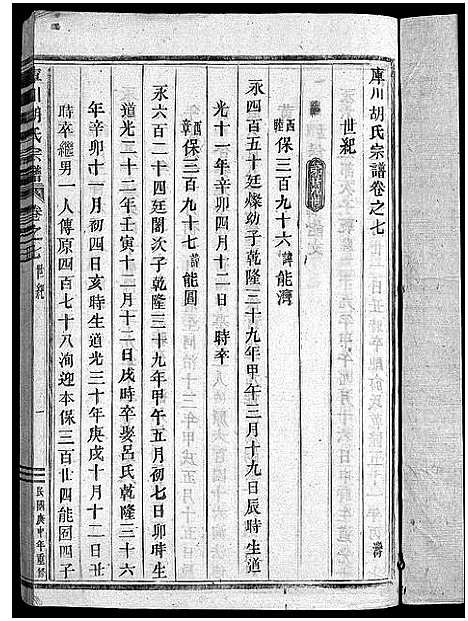 庫川胡氏宗譜卷之七
世紀
西陸保三百九十六諱能濟
永四百五十廷燦幼子乾隆三十九年甲午三月十九日辰時生道
光十一年辛卯四月十二日　時卒
西章保三百九十七諱能圓
永六百二十四廷闇次子乾隆三十九年甲午五月初七日卯時生
永道光二十二年壬寅十二月十二日戌時卒娶呂氏乾隆三十六
年辛卯十一月初四日亥時生道光三十年庚戌十月十二日丑
時卒繼男一人傳原四百七十八洵迎本保三百廿四能囧四子
庫川胡氏宗譜
卷之七
世紀
一
民國庚申年重修